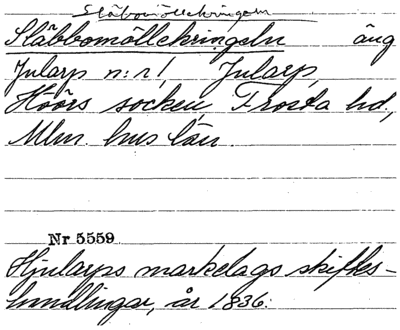 Släbomöllekringeln
Släbbomöllekringeln äng
Jularp n:r 1, Jularp,
Höörs socken, Frosta hd,
Mlm. hus län.
Nr 5559
Hjularps markelags skiftes-
handlingar, år 1836.